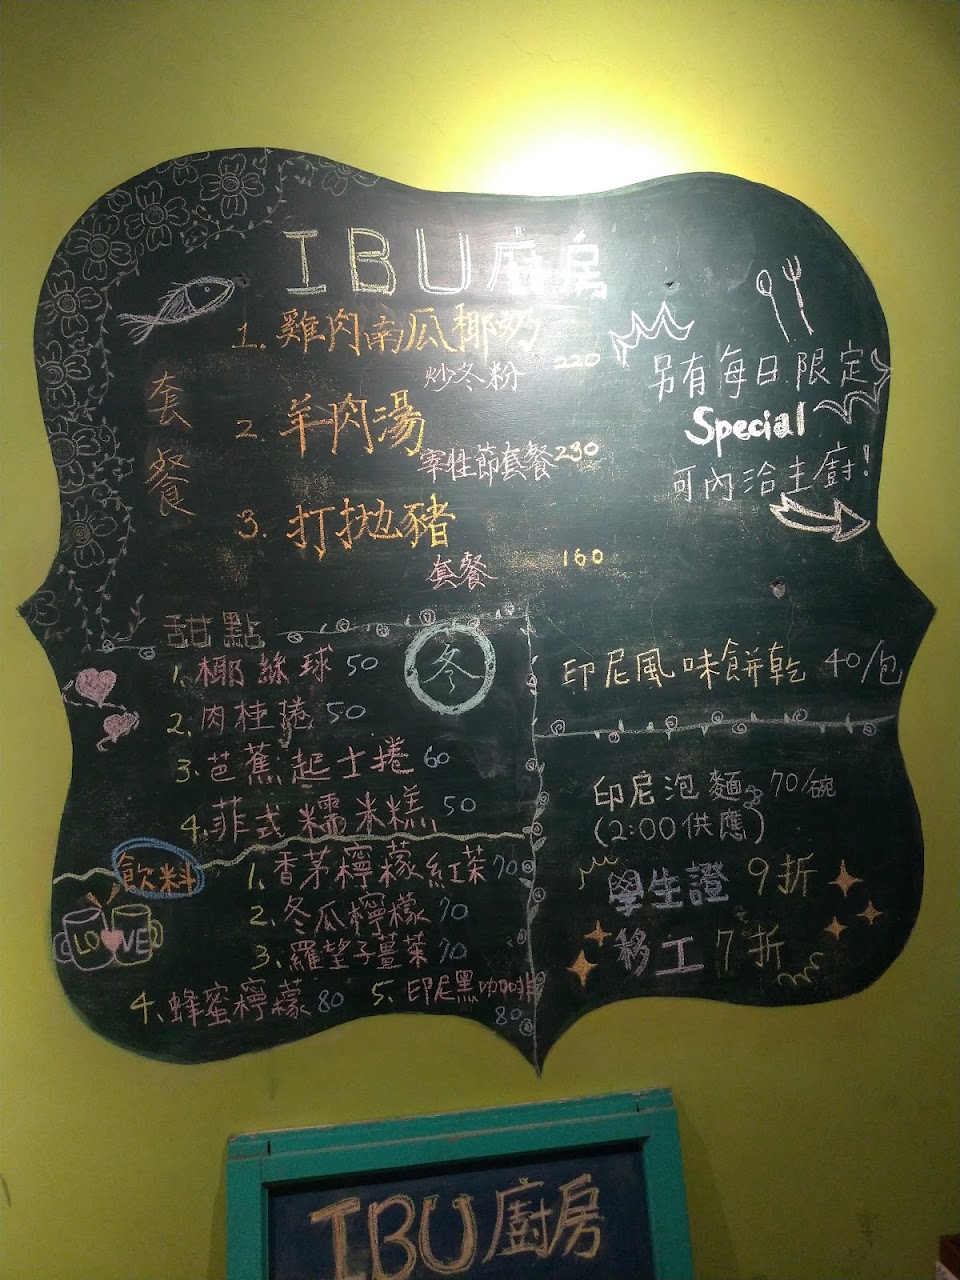 IBU廚房
套餐
1. 雞肉南瓜椰奶
炒冬粉 220
2. 羊肉湯
宰牲節套餐 230
3. 打拋豬
套餐 160
另有每日限定
Special
可內洽主廚!
甜點
冬
1. 椰絲球 50
2. 肉桂捲 50
3. 芭蕉起士捲 60
4. 菲式糯米糕 50
飲料
LOVE
1. 香茅檸檬紅茶 70
2. 冬瓜檸檬 70
3. 羅望子薑茶 70
4. 蜂蜜檸檬 80
5. 印尼黑咖啡 80
印尼風味餅乾 40/包
印尼泡麵 70/碗
(2:00供應)
學生證 9折
移工 7折
IBU廚房